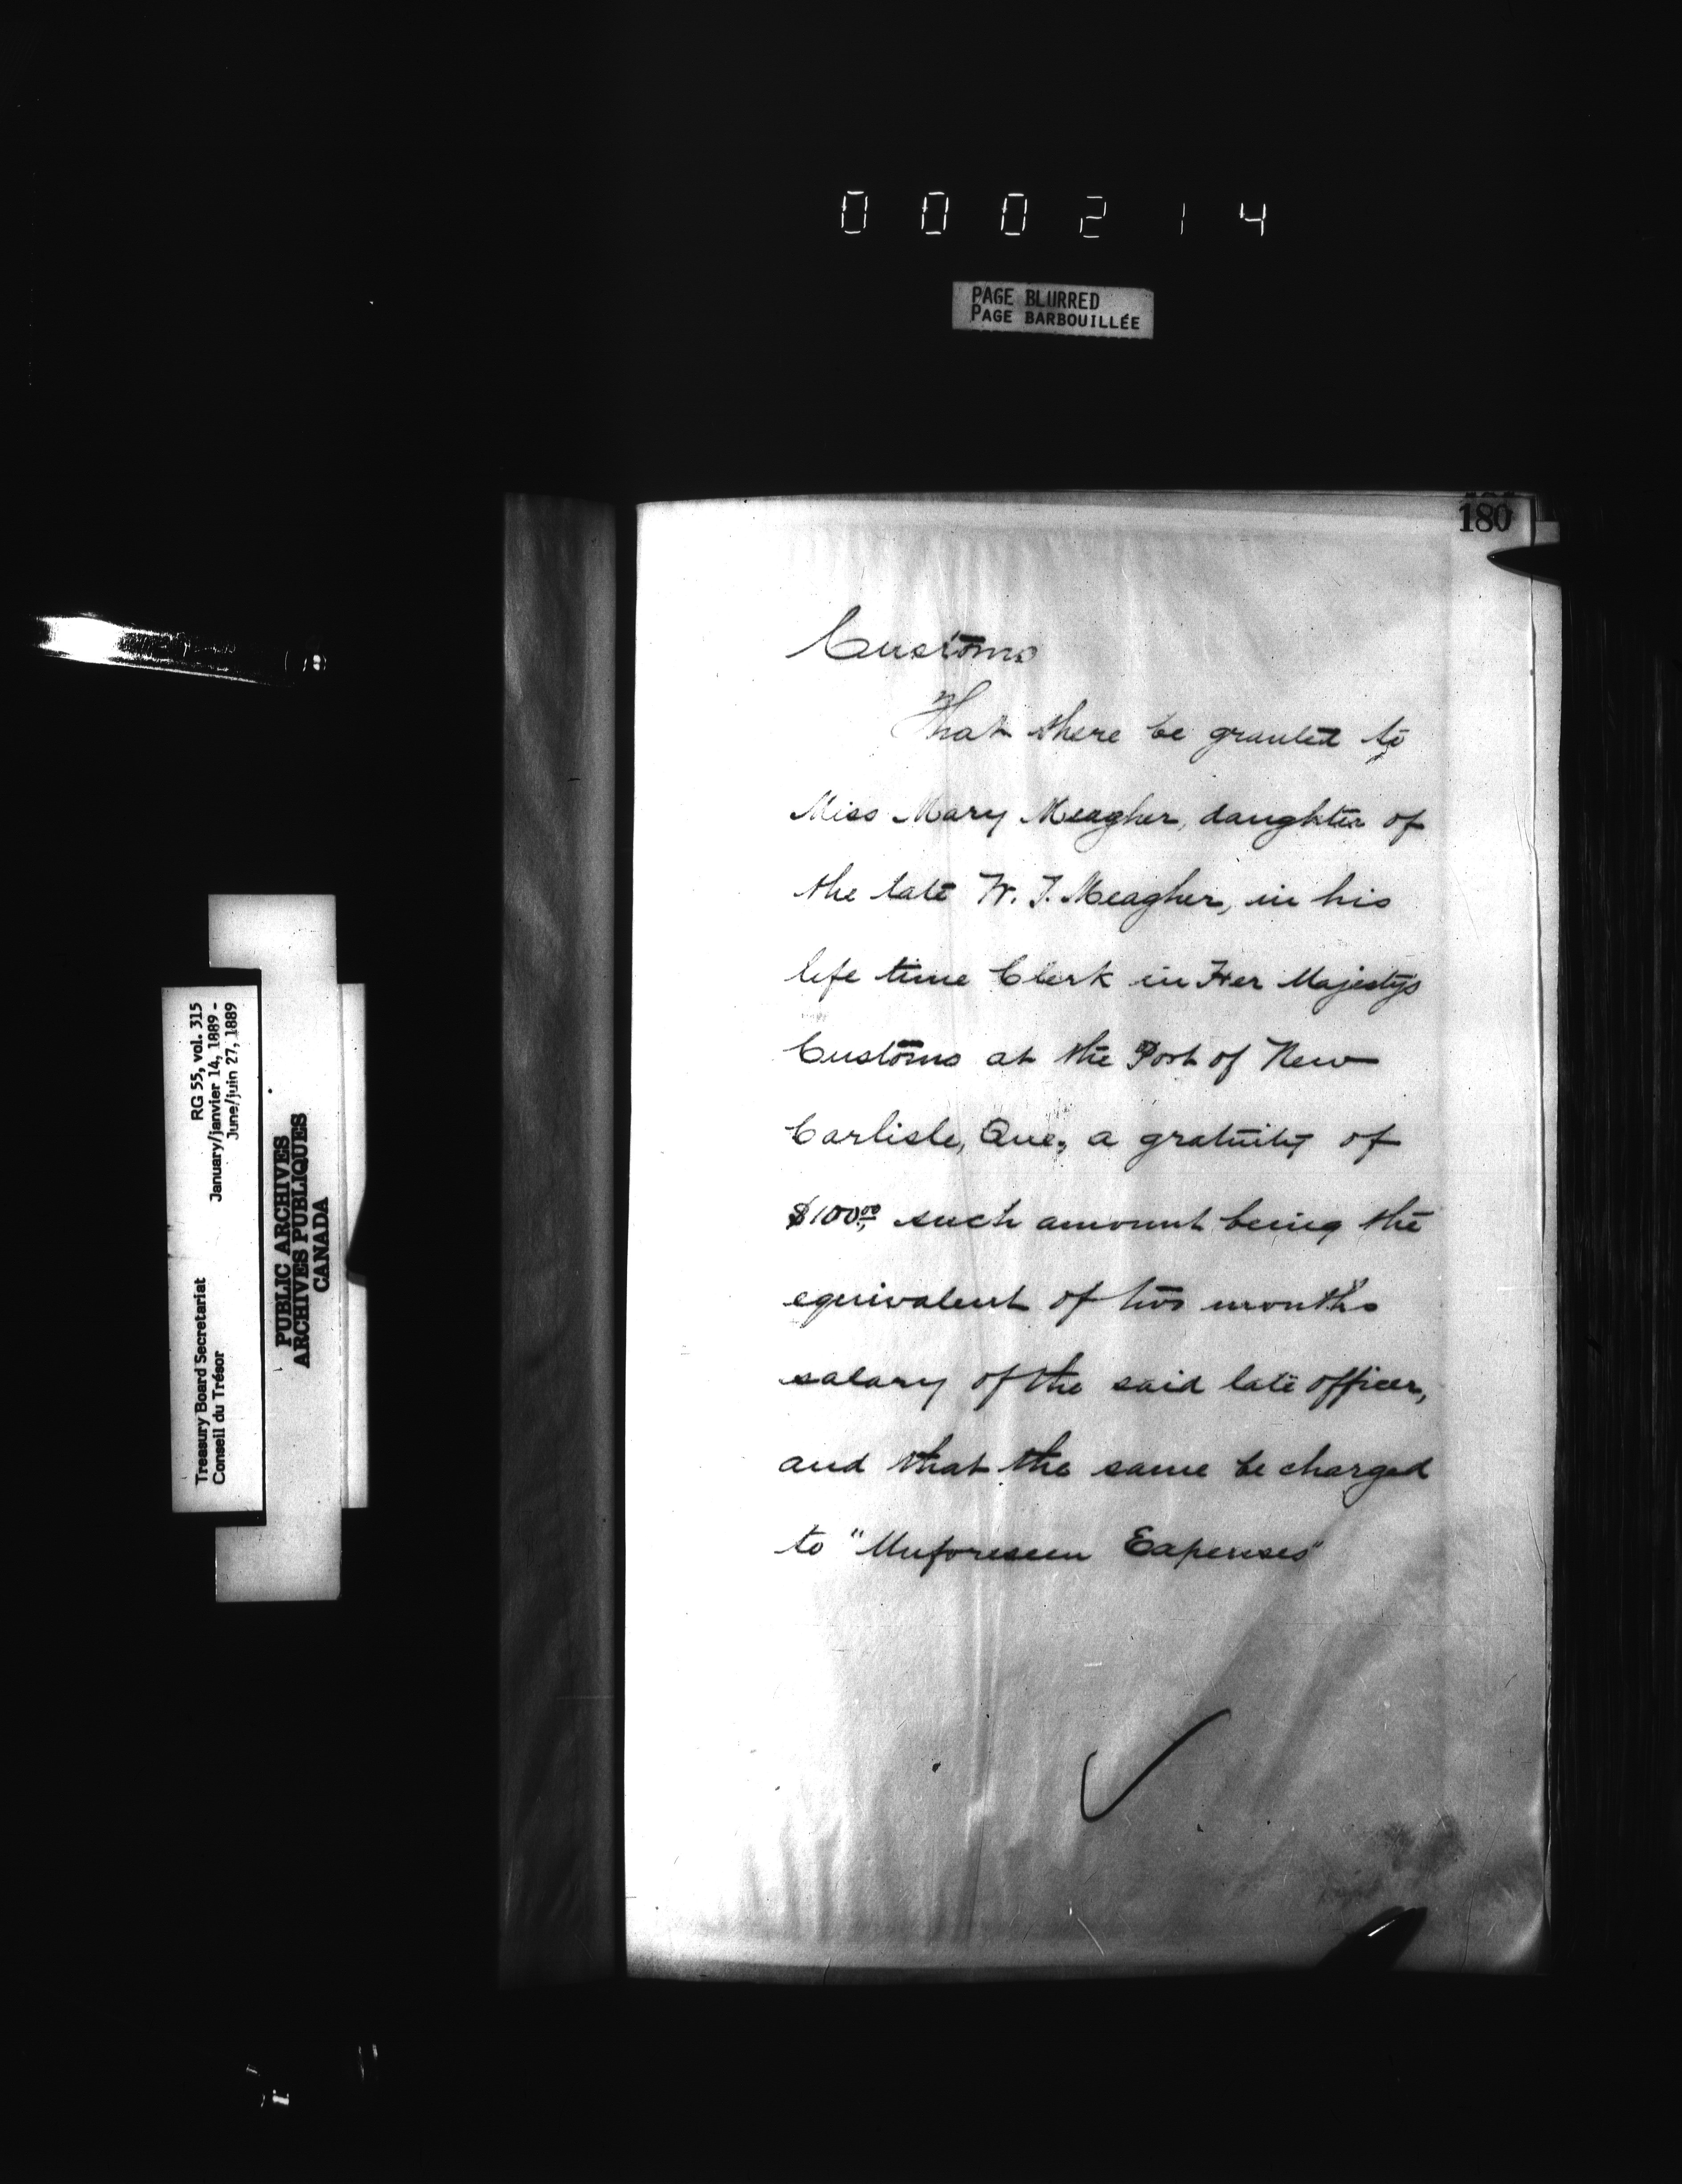 000214
PAGE BLURRED
PAGE BARBOUILLÉE
180
Customs
That there be granted to
Miss Mary Meagher, daughter of
the late W. J. Meagher, in his
life time Clerk in Her Majestys
Customs at the Port of New
Carlisle, Que, a gratuity of
$100.00, such amount being the
equivalent of two months
salary of the said late officer,
and that the same be charged
to "Unforeseen Expenses"
RG 55, vol. 315
January/janvier 14, 1889 -
June/juin 27, 1889
Treasury Board Secretariat
Conseil du Trésor
PUBLIC ARCHIVES
ARCHIVES PUBLIQUES
CANADA